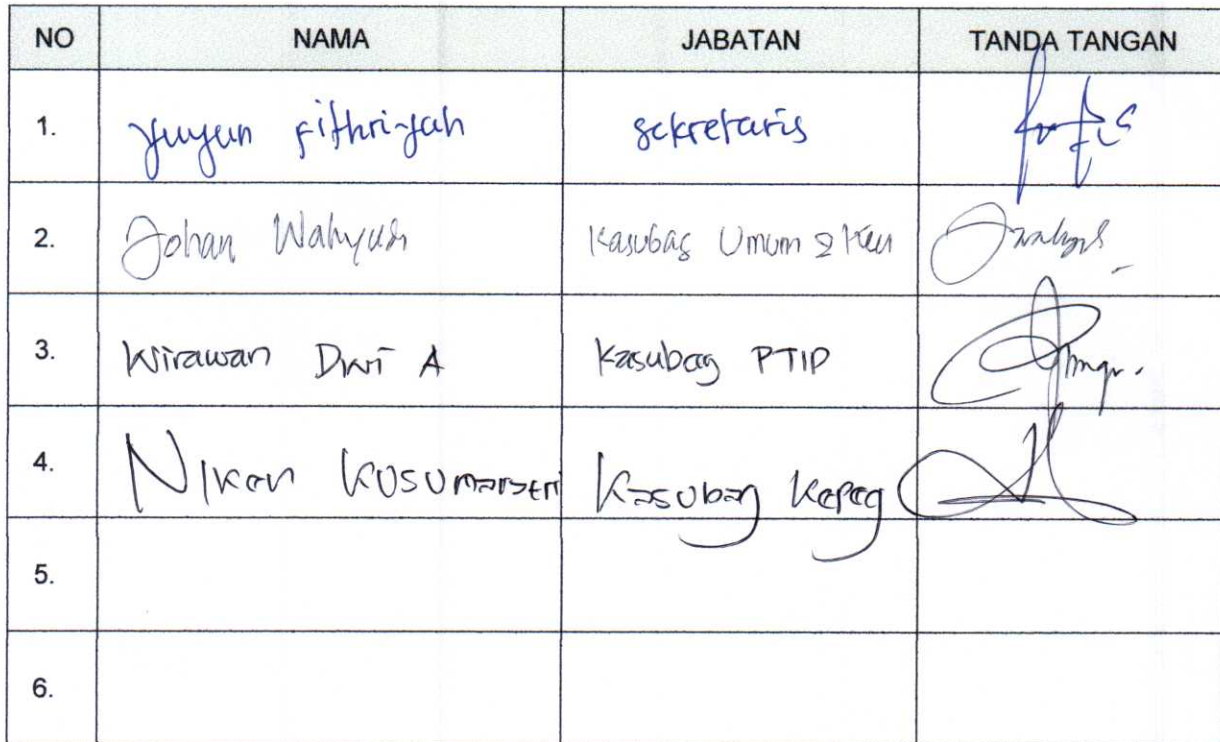 NO NAMA JABATAN TANDA TANGAN
1. Yuyun Fithri-yah sekretaris
2. Johan Wahyudi Kasubag Umum & Keu
3. Wirawan Dwi A Kasubag PTIP
4. Niken Kusumarseri Kasubag Kepeg
5.
6.